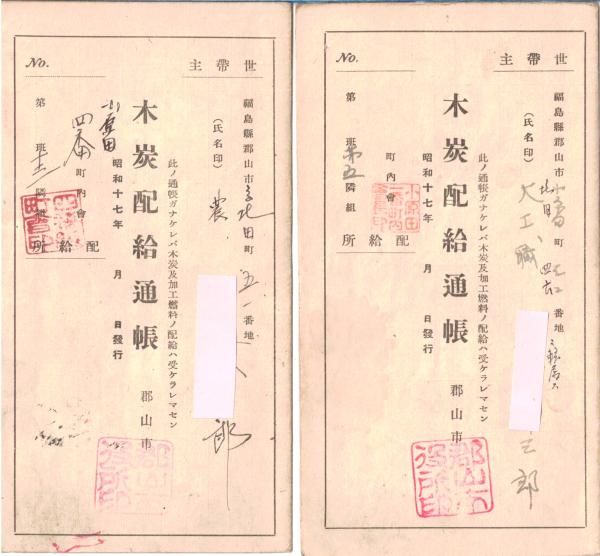 世帶主
福島縣郡山市 字 田町 五一番地
農
（氏名印）
郎
此ノ通帳ガナケレバ木炭及加工燃料ノ配給ハ受ケラレマセン
木炭配給通帳 郡山市
郡山市役所印
昭和十七年 月 日發行
小原田
四番 町內會
第 班 十二 隣組
配給所
No.
世帶主
福島縣郡山市 町 番地
大工職
（氏名印）
三郎
此ノ通帳ガナケレバ木炭及加工燃料ノ配給ハ受ケラレマセン
木炭配給通帳 郡山市
郡山市役所印
昭和十七年 月 日發行
町內會
小原田
第 班 第五 隣組
配給所
No.